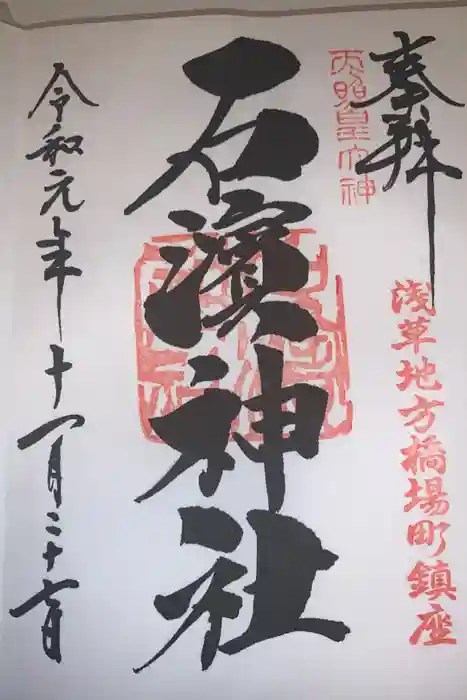 奉拜
天照皇大神
浅草地方橋場町鎮座
石濱神社
令和元年十一月二十六日